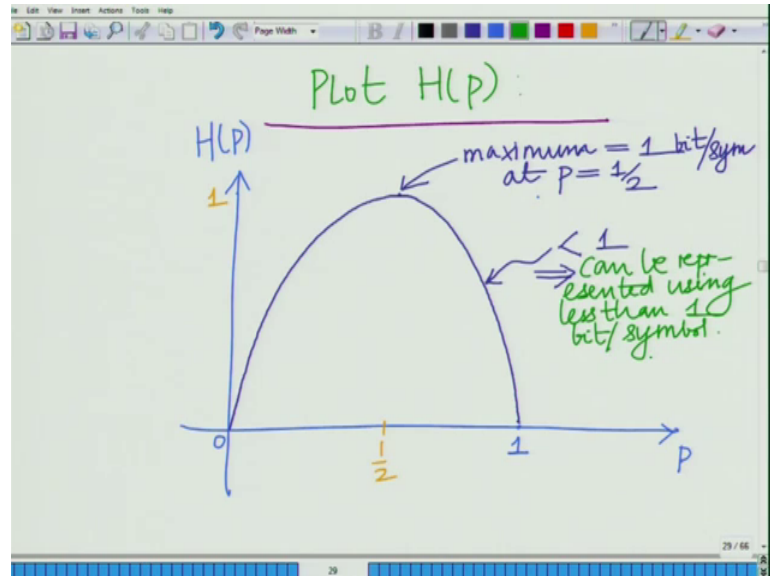 File Edit View Insert Actions Tools Help
Page Width
B I
Plot H(p) :
H(p)
maximum = 1 bit/sym
at p = 1/2
1
< 1
⇒ can be repr-
esented using
less than 1
bit/symbol.
0
1/2
1
p
29 / 66
29